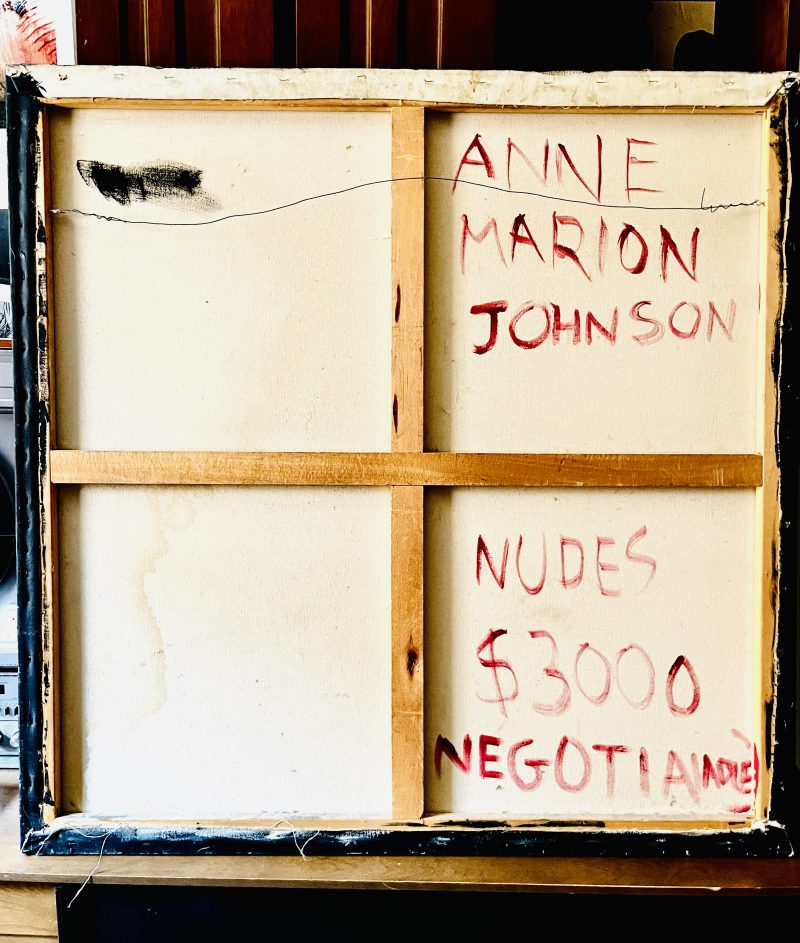 ANNE
MARION
JOHNSON
NUDES
$3000